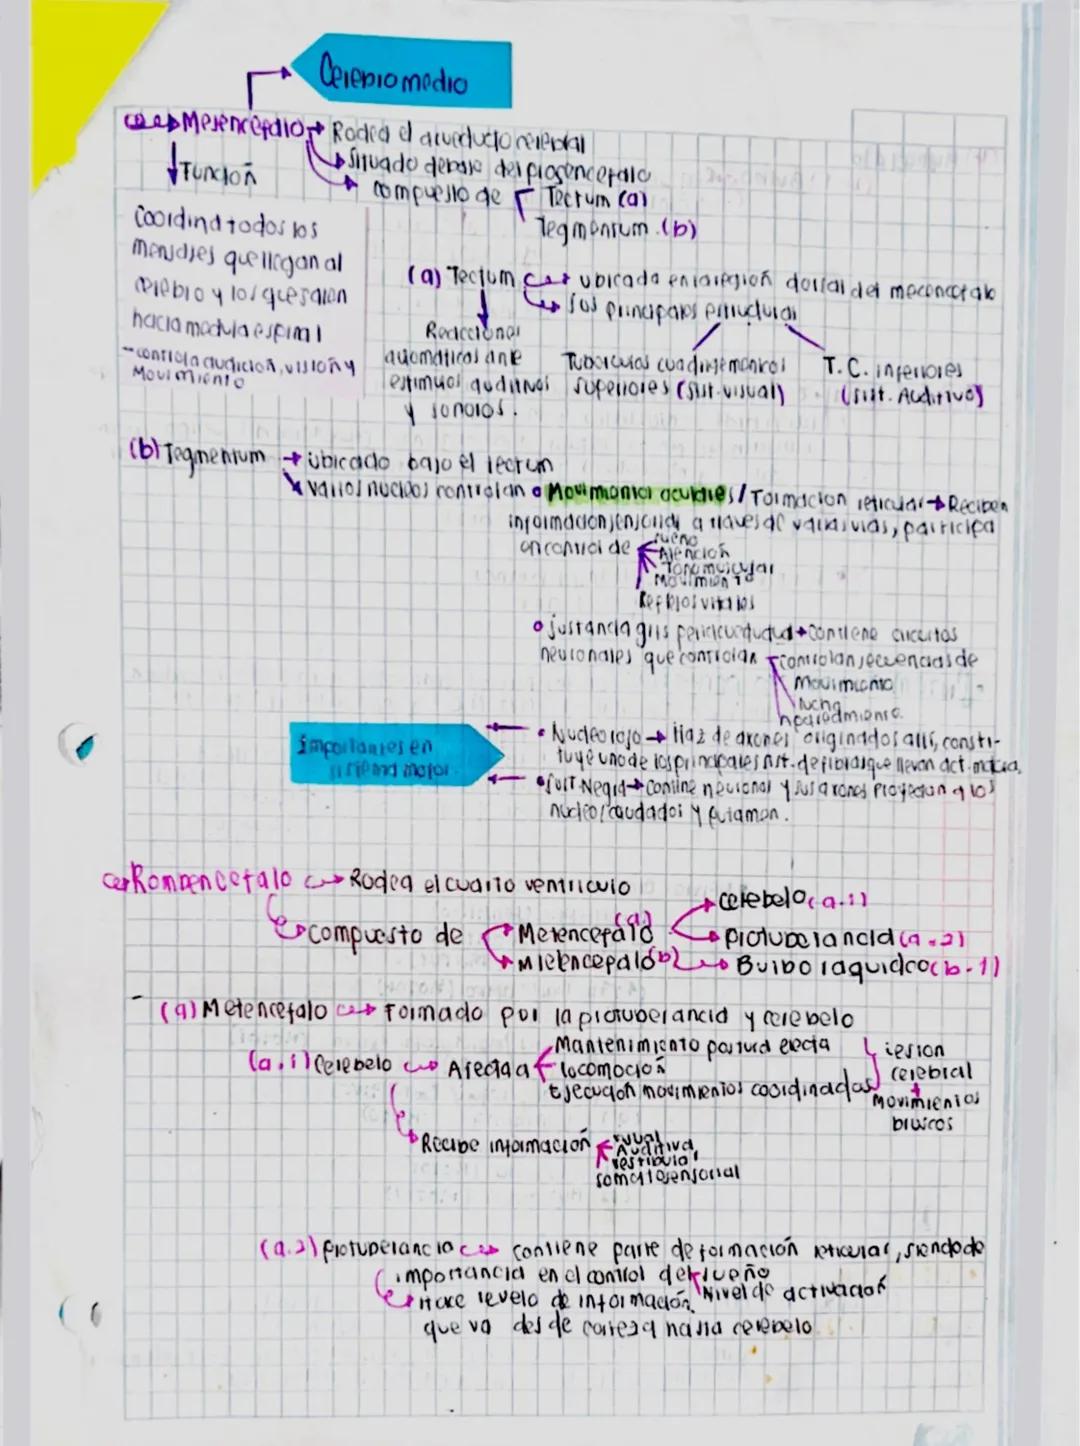 Cerebro medio
Mesencefalo → Rodea el acueducto cerebral
Situado debajo del prosencefalo
compuesto de Tectum (a)
Tegmentum (b)
Función
Coordina todos los
mensajes que llegan al
cerebro y los que salen
hacia medula espinal
- controla audición, visión y
Movimiento
(a) Tectum → ubicada en la región dorsal del mecencefalo
sus principales estructuras
Reacciones
automaticas ante
estimulos auditivos
y sonoros.
Tuberculos cuadrigemenicos
superiores (sist. visual)
T. C. inferiores
(sist. Auditivo)
(b) Tegmentum → ubicado bajo el tectum
varios nucleos controlan • Movimientos oculares / Formacion reticular → Reciben
información sensorial a traves de varias vias, participa
en control de
sueño
Atención
Tono muscular
Movimiento
Reflejos vitales
• sustancia gris periacueductual → contiene circuitos
neuronales que controlan controlan secuencias de
Movimiento
lucha
apaeadmiento
Importantes en
sistema motor
• Nucleo rojo → Haz de axones originados alli, consti-
tuye uno de los principales sist. de fibras que llevan act. motora
• sust. Negra → contine neuronas y sus axones proyectan a los
nucleos caudados y putamen.
Rombencefalo → Rodea el cuarto ventriculo
compuesto de Metencefalo (a) cerebelo (a.1)
protuberancia (a.2)
Mielencefalo (b) → Bulbo raquideo (b-1)
- (a) Metencefalo → Formado por la protuberancia y cerebelo
(a.1) Cerebelo → Afecta a
Mantenimiento postura erecta
locomoción
Ejecución movimientos coordinados
lesion
cerebral
↓
Movimientos
bruscos
Recibe información
visual
Auditiva
vestibular
somatosensorial
(a.2) protuberancia → contiene parte de formación reticular, siendo de
importancia en el control del sueño
Nivel de activación
Hace relevo de información
que va desde corteza hasta cerebelo